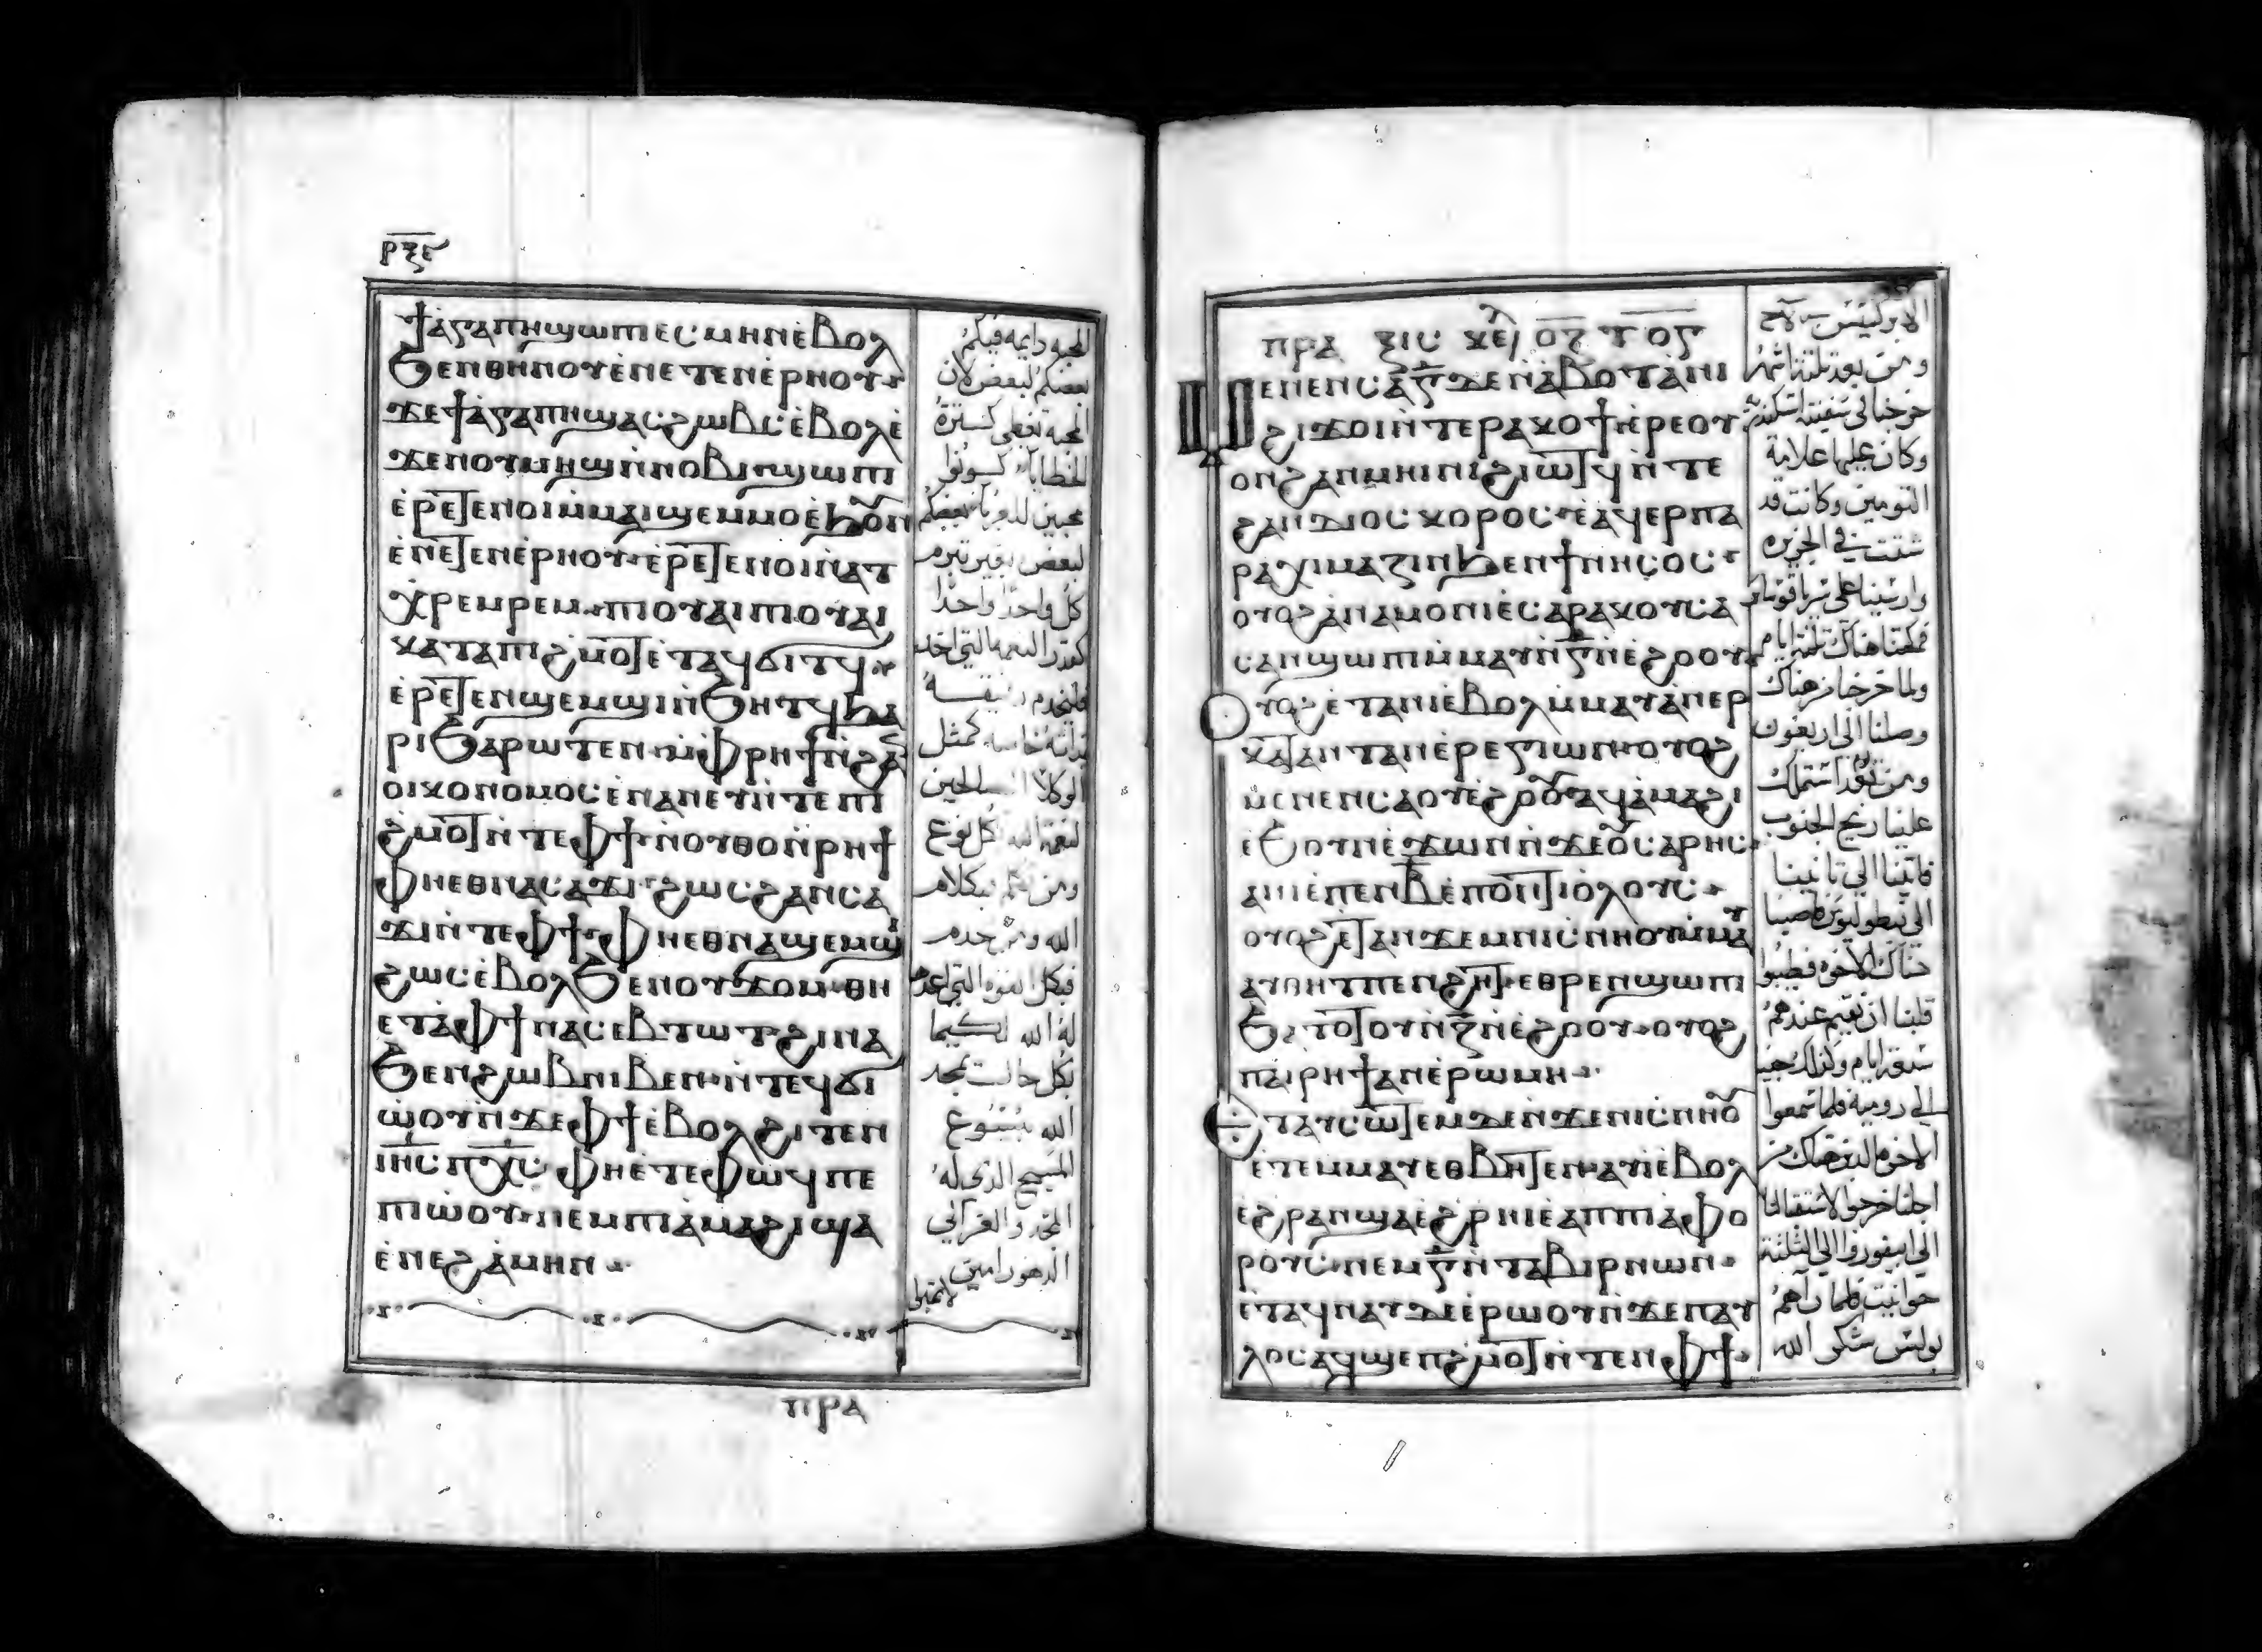 ⲣⲝⲉ
ϯⲁⲅⲁⲡⲏ ϣⲱⲡⲓ ⲉⲥⲙⲏⲛ ⲉ̀ⲃⲟⲗ
ϧⲉⲛ ⲑⲏⲛⲟⲩ ⲉ̀ⲛⲉⲧⲉⲛⲉ̀ⲣⲏⲟⲩ
ϫⲉ ϯⲁ̀ⲅⲁⲡⲏ ϣⲁⲥϩⲱⲃⲥ ⲉ̀ⲃⲟⲗ ⲉ̀
ϫⲉⲛ ⲟⲩⲙⲏϣ ⲛ̀ⲛⲟⲃⲓ ϣⲱⲡⲓ
ⲉ̀ⲣⲉⲧⲉⲛⲟⲓ ⲙ̀ⲙⲁⲓϣⲉⲙⲙⲟ ⲉ̀ϧⲟⲩⲛ
ⲉ̀ⲛⲉⲧⲉⲛⲉ̀ⲣⲏⲟⲩ ⲉ̀ⲣⲉⲧⲉⲛⲟⲓ ⲛ̀ⲁⲧ
ⲭⲣⲉⲙⲣⲉⲙ ⲡⲓⲟⲩⲁⲓ ⲡⲓⲟⲩⲁⲓ
ⲕⲁⲧⲁ ⲡⲓϩ̀ⲙⲟⲧ ⲉ̀ⲧⲁϥϭⲓⲧϥ
ⲉ̀ⲣⲉⲧⲉⲛϣⲉⲙϣⲓ ⲛ̀ϧⲏⲧϥ ϧⲁ
ⲣⲓϧⲁⲣⲱⲧⲉⲛ ⲙ̀ⲫⲣⲏϯ ⲛ̀ϩⲁⲛ
ⲟⲓⲕⲟⲛⲟⲙⲟⲥ ⲉ̀ⲛⲁⲛⲉⲩ ⲛ̀ⲧⲉ ⲡⲓ
ϩ̀ⲙⲟⲧ ⲛ̀ⲧⲉ ⲫϯ ⲛⲟⲩⲑⲟ ⲛ̀ⲣⲏϯ
ⲫⲏⲉⲑⲛⲁⲥⲁϫⲓ ϩⲱⲥ ϩⲁⲛⲥⲁ
ϫⲓ ⲛ̀ⲧⲉ ⲫϯ ⲫⲏⲉⲑⲛⲁϣⲉⲙϣⲓ
ϩⲱⲥ ⲉ̀ⲃⲟⲗ ϧⲉⲛ ⲟⲩϫⲟⲙ ⲑⲏ
ⲉⲧⲁ ⲫϯ ⲛⲁⲥⲉⲃⲧⲱⲧⲥ ϩⲓⲛⲁ
ϧⲉⲛ ϩⲱⲃ ⲛⲓⲃⲉⲛ ⲛ̀ⲧⲉϥϭⲓ
ⲱ̀ⲟⲩ ⲛ̀ϫⲉ ⲫϯ ⲉ̀ⲃⲟⲗ ϩⲓⲧⲉⲛ
ⲓⲏⲥ ⲡⲭⲥ ⲫⲏⲉⲧⲉ ⲫⲱϥ ⲡⲉ
ⲡⲓⲱ̀ⲟⲩ ⲛⲉⲙ ⲡⲓⲁ̀ⲙⲁϩⲓ ϣⲁ
ⲉ̀ⲛⲉϩ ⲁ̀ⲙⲏⲛ
المحبه دايمه فيكم
بعضكم لبعض لان
المحبه تغطى كتيرة
الخطايا كونوا
محبين للغربا بعضكم
لبعض بغير تبرم
كل واحدا واحدا
كقدر النعمه التي اخد
كمثل
الوكلا الصالحين
لنعمة الله كل نوع
ومن يتكلم فبكلام
الله ومن يخدم
فبكل القوه التي اعدها
له الله لكيما
بكل حال يتمجد
الله بيسوع
المسيح الذى له
المجد والعز الى
الدهور امين
ⲡⲣⲁ
ⲡⲣⲁⲝⲓⲥ ⲕⲉⲗ ⲟⲍ ⲧ ⲟⲅ
ⲙⲉⲛⲉⲛⲥⲁ ⲅ̅ ⲇⲉ ⲛ̀ⲁ̀ⲃⲟⲧ ⲁⲛⲓ
ϩⲓ ϫⲟⲓ ⲛ̀ⲧⲉ ⲣⲁⲕⲟϯ ⲉ̀ⲣⲉ ⲟⲩ
ⲟⲛ ϩⲁⲛⲙⲏⲓⲛⲓ ϩⲓⲱⲧϥ ⲛ̀ⲧⲉ
ϩⲁⲛⲇⲓⲟⲥⲕⲟⲣⲟⲥ ⲉ̀ⲁϥⲉⲣⲡⲁ
ⲣⲁⲭⲓⲙⲁⲍⲓⲛ ϧⲉⲛ ϯⲛⲏⲥⲟⲥ
ⲟⲩⲟϩ ⲁⲛⲁⲙⲟⲛⲓ ⲉ̀ⲥⲁⲣⲁⲕⲟⲩⲥⲁ
ⲥ ⲁⲛϣⲱⲡⲓ ⲙ̀ⲙⲁⲩ ⲛ̀ⲅ̅ ⲛ̀ⲉ̀ϩⲟⲟⲩ
ⲟⲩⲟϩ ⲉ̀ⲧⲁⲛⲓ̀ ⲉ̀ⲃⲟⲗ ⲙ̀ⲙⲁⲩ ⲁⲛⲉⲣ
ⲕⲁⲧⲁⲛⲧⲁⲛ ⲉ̀ⲣⲉⲅⲓⲱⲛ ⲟⲩⲟϩ
ⲙⲉⲛⲉⲛⲥⲁ ⲟⲩⲉ̀ϩⲟⲟⲩ ⲁϥⲁ̀ⲙⲁϩⲓ
ⲉ̀ϧⲟⲩⲛ ⲉ̀ϫⲱⲛ ⲛ̀ϫⲉ ⲟⲩⲥⲁⲣⲏⲥ
ⲁⲛⲓ̀ ⲉ̀ⲡⲉⲛⲃ̅ ⲉ̀ⲡⲟⲛⲧⲓⲟ̀ⲗⲟⲩⲥ
ⲟⲩⲟϩ ⲉ̀ⲧⲁⲛϫⲉⲙ ⲛⲓⲥⲛⲏⲟⲩ ⲙ̀ⲙⲁⲩ
ⲁⲩⲑⲏⲧ ⲡⲉⲛϩⲏⲧ ⲉⲑⲣⲉⲛϣⲱⲡⲓ
ϧⲁⲧⲟⲧⲟⲩ ⲛ̀ⲍ̅ ⲛ̀ⲉ̀ϩⲟⲟⲩ ⲟⲩⲟϩ
ⲡⲁⲓⲣⲏϯ ⲁⲛⲓ̀ ⲉ̀ⲣⲱⲙⲏ
ⲉ̀ⲧⲁⲩⲥⲱⲧⲉⲙ ⲇⲉ ⲛ̀ϫⲉ ⲛⲓⲥⲛⲏⲟⲩ
ⲉ̀ⲧⲉⲙⲙⲁⲩ ⲉⲑⲃⲏⲧⲉⲛ ⲁⲩⲓ̀ ⲉ̀ⲃⲟⲗ
ⲉ̀ϩⲣⲁⲛ ϣⲁ ⲉ̀ϩⲣⲏⲓ ⲉ̀ⲁⲡⲡⲓⲁ̀ⲫⲟ
ⲣⲟⲩⲥ ⲛⲉⲙ ⲅ̅ ⲛ̀ⲧⲁⲃⲓⲣⲛⲱⲛ
ⲉ̀ⲧⲁϥⲛⲁⲩ ⲇⲉ ⲉ̀ⲣⲱⲟⲩ ⲛ̀ϫⲉ ⲡⲁⲩ
ⲗⲟⲥ ⲁϥϣⲉⲡϩ̀ⲙⲟⲧ ⲛ̀ⲧⲉⲛ ⲫϯ
الابركسيس
ومن بعد تلتة اشهر
خرجنا في سفينة اسكندرية
وكان عليها علامة
التومين وكانت قد
شتت في الجزيره
وارسينا على سراقوسا
فمكتنا هناك تلتة ايام
ولما خرجنا من هناك
وصلنا الى اريغون
ومن بعد اشتملت
علينا ريح الجنوب
فاتينا الى تانينا
هناك الاخوه فطيبوا
قلبنا ان نقيم عندهم
سبعة ايام وكذلك جينا
الى رومية فلما سمعوا
الاخوه الذين هناك من
اجلنا خرجوا لاستقبالنا
الى ابيفوروا الى التلتة
حوانيت فلما راهم
بولس شكر الله